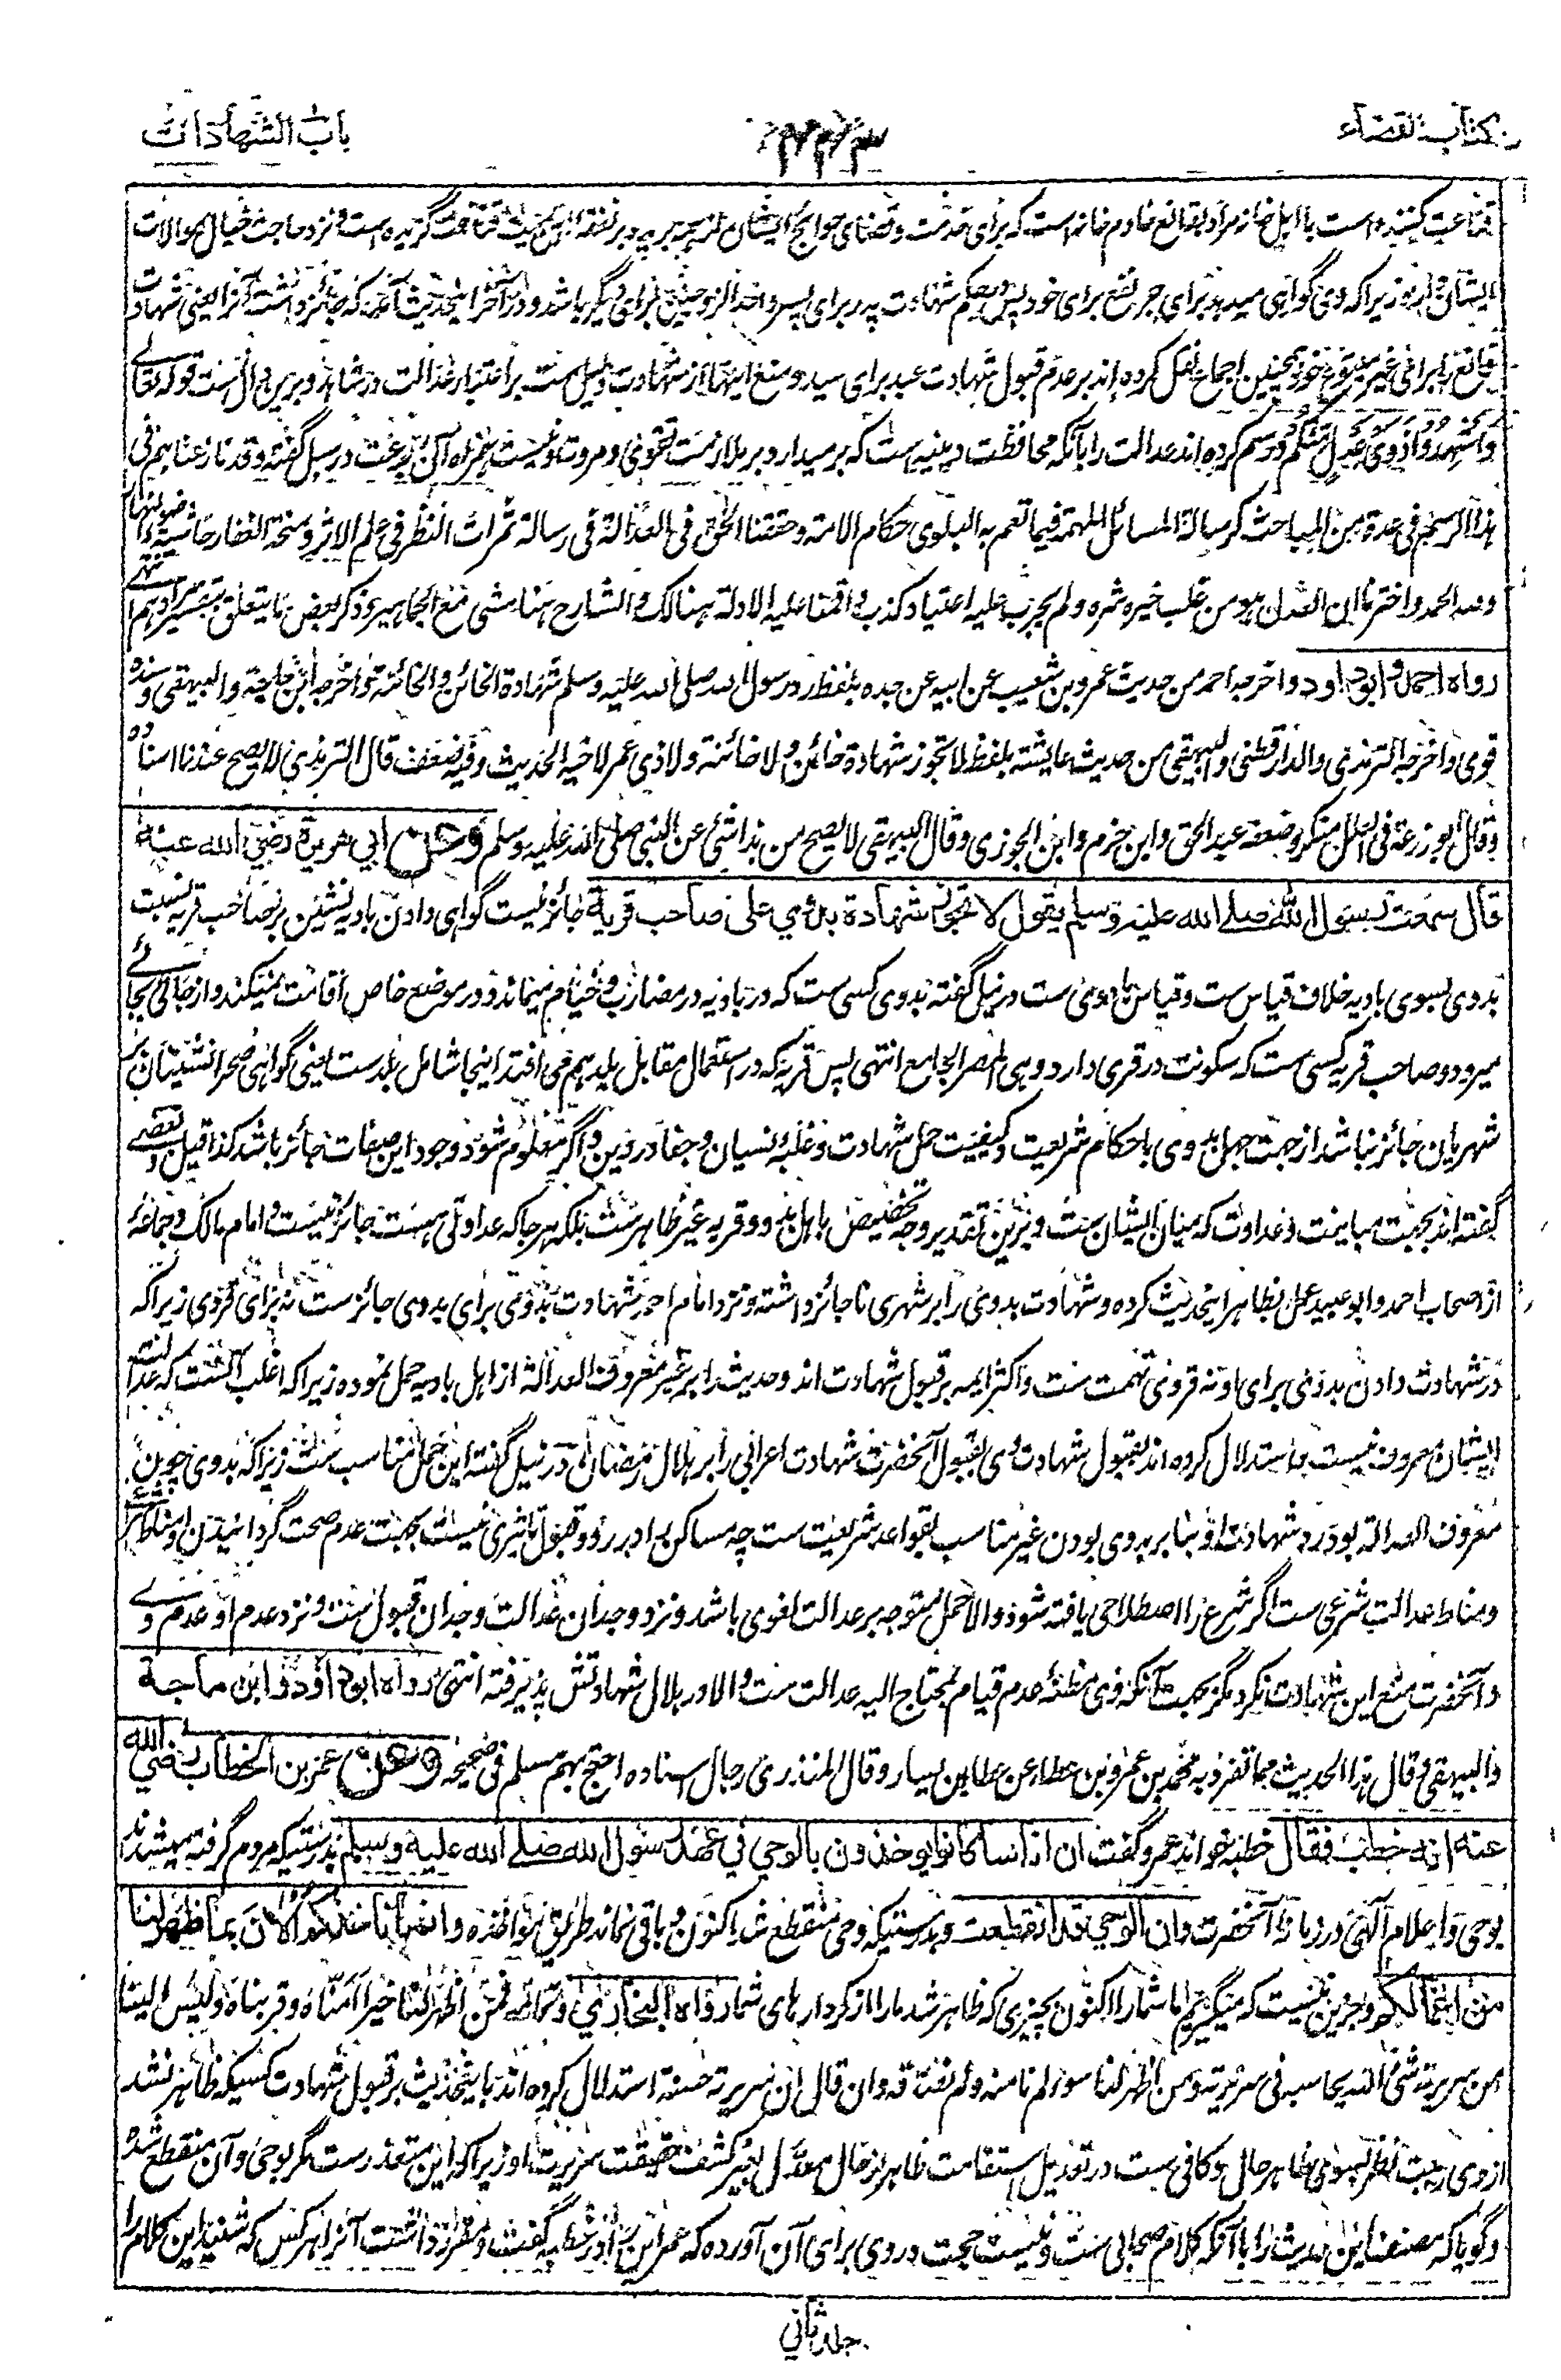 کتاب القضاء
باب الشهادات
قناعت کننده است با اهل خانه مراد بقانع خادم خانه است که برای خدمت و قضای حوائج ایشان
ایشان را زیرا که وی گواهی میدهد برای جر نفع برای خود پس حکم شهادت پدر برای پسر و احد الزوجین برای دیگر باشد و در آخر اینحدیث آمده که جائز داشت آنرا یعنی شهادت
قانع را برای غیر متبوع خود همچنین اجماع نقل کرده اند بر عدم قبول شهادت عبد برای سید و منع اینها از شهادت دلیل ست بر اعتبار عدالت در شاهد و برین دال ست قوله تعالے
وأشهدوا ذوی عدل منکم و رسم کرده اند عدالت را بآنکه محافظت دینیه است که برمیدارد بر ملازمت تقوی و مروت و نیست همراه آن بدعت در سبل گفته وقد نازعناهم فی
هذا الرسم فی عدة من المباحث کرسالة المسائل المهمة فیما تعم به البلوی حکام الامة وحققنا الحق فی العدالة فی رسالة ثمرات النظر فی علم الاثر ومنحة الغفار حاشیة ضوء النهار
ولله الحمد واخترنا ان العدل هو من غلب خیره شره ولم یجرب علیه اعتیاد کذب واقمنا علیه الادلة هنالک والشارح هنا مشی مع الجماهیر وذکر بعض ما یتعلق بتفسیر مرادهم انتهے
رواه احمد و ابو داود واخرجه احمد من حدیث عمرو بن شعیب عن ابیه عن جده بلفظ رد رسول الله صلی الله علیه وسلم شهادة الخائن والخائنة واخرجه ابن ماجة والبیهقی وسنده
قوی واخرجه الترمذی والدارقطنی والبیهقی من حدیث عایشة بلفظ لا تجوز شهادة خائن ولا خائنة ولا ذی غمر لاخیه الحدیث وفیه ضعف قال الترمذی لا یصح عندنا اسناده
وقال ابو زرعة فی العلل منکر وضعفه عبد الحق وابن حزم وابن الجوزی وقال البیهقی لا یصح من هذا شئ عن النبی صلی الله علیه وسلم وعن ابي هريرة رضي الله عنه
قال سمعت رسول الله صلے الله عليه وسلم يقول لا تجوز شهادة بدوي على صاحب قرية جائز نیست گواهی دادن بادیه نشین بر صاحب قریه نسبت
بدوی بسوی بادیه خلاف قیاس ست و قیاس بادوی ست در نیل گفته بدوی کسی ست که در بادیه در مضارب و خیام میماند و در موضع خاص اقامت نمیکند و از جائی بجائے
میرود و صاحب قریه کسی ست که سکونت در قری دارد وهی المصر الجامع انتهی پس قریه که در استعمال مقابل بلد هم می افتد اینجا شامل بلد ست یعنی گواهی صحرا نشینان بر
شهریان جائز نباشد از جهت جهل بدوی باحکام شریعت و کیفیت حمل شهادت و غلبهٔ نسیان و جفا در دین و اگر معلوم شود وجود این صفات جائز باشد کذا قیل و بعضے
گفته اند بجهت مباینت و عداوت که میان ایشان ست و برین تقدیر وجه تخصیص باهل بدو و قریه غیر ظاهر ست بلکه هر جا که عداوتی هست جائز نیست و امام مالک و جماعهٔ
از اصحاب احمد و ابو عبید عمل بظاهر اینحدیث کرده و شهادت بدوی را بر شهری ناجائز داشته و نزد امام احمد شهادت بدوی برای بدوی جائز ست نه برای قروی زیرا که
در شهادت دادن بدوی برای او نه قروی تهمت ست و اکثر ایمه بر قبول شهادت اند و حدیث را بر غیر معروف العدالة از اهل بادیه حمل نموده زیرا که اغلب آنست که عدالت
ایشان معروف نیست و استدلال کرده اند بقبول شهادت وی بقبول آنحضرت شهادت اعرابی را بر هلال رمضان در نیل گفته این حمل مناسب ست زیرا که بدوی چون
معروف العدالة بود رد شهادت او بنا بر بدوی بودن غیر مناسب بقواعد شریعت ست چه مساکن را در رد و قبول تاثیری نیست بجهت عدم صحت گردانیدن او مناط
ومناط عدالت شرعی ست اگر شرع را اصطلاحی یافته شود والا حمل متوجه بر عدالت لغوی باشد و نزد وجدان عدالت وجدان قبول ست و نزد عدم او عدم وے
و آنحضرت منع این شهادت نکرد مگر بجهت آنکه وی مظنهٔ عدم قیام بمحتاج الیه عدالت ست والا در هلال شهادتش پذیرفته انتهی رواه ابو داؤد وابن ماجة
والبیهقی وقال هذا الحدیث مما تفرد به محمد بن عمرو بن عطاء عن عطا بن یسار وقال المنذری رجال اسناده احتج بهم مسلم فی صحیحه وعن عمر بن الخطاب رضي الله
عنه انه خطب فقال خطبه خواند عمر و گفت ان اناسا كانوا يؤخذون بالوحي في عهد رسول الله صلے الله عليه وسلم بدرستیکه مردم گرفته میشدند
بوحی و اعلام آلهی در زمانهٔ آنحضرت وان الوحي قد انقطعت و بدرستیکه وحی منقطع شد اکنون و باقی نماند طریق مواخذه وانما ناخذكم الآن بما ظهر لنا
من اعمالكم و جز این نیست که میگیریم ما شما را اکنون بچیزی که ظاهر شد ما را از کردارهای شما رواه البخاري وتمامه فمن اظهر لنا خیرا امناه وقربناه ولیس الینا
من سریرته شئ الله یحاسبه فی سریرته ومن اظهر لنا سوءا لم نامنه ولم نصدقه وان قال ان سریرته حسنة استدلال کرده اند باینحدیث بر قبول شهادت کسیکه ظاهر نشد
از وی ریبت نظر بسوی ظاهر حال و کافی ست در تعدیل استقامت ظاهر از حال معدل بغیر کشف حقیقت سریرت او زیرا که این متعذر ست مگر بوحی و آن منقطع شده
و گویا که مصنف این حدیث را با آنکه کلام صحابی ست و نیست حجت در وی برای آن آورده که عمر این را در خطبه گفت و مقرر داشت آنرا هر کس که شنید این کلام را
جلد ثانی